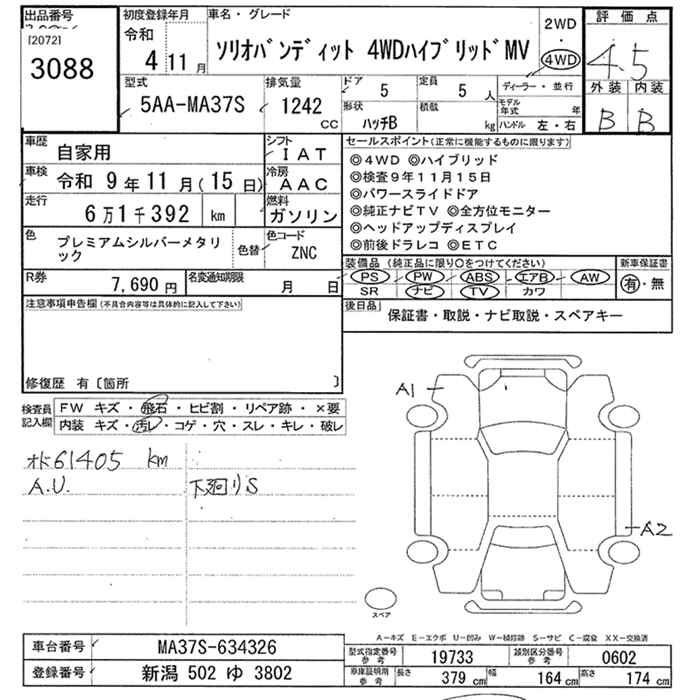 出品番号
[2072]
3088
初度登録年月
令和
4 11 月
車名・グレード
ソリオバンディット 4WDハイブリッドMV
2WD
・
4WD
評価点
4.5
外装 内装
B B
型式
5AA-MA37S
排気量
1242
cc
ドア
5
定員
5 人
形状
ハッチB
積載
kg
ディーラー・並行
モデル年式 年
ハンドル 左・右
車歴
自家用
シフト
IAT
車検
令和 9年11月(15日)
冷房
AAC
走行
6万1千392 km
燃料
ガソリン
色
プレミアムシルバーメタリック
色替
色コード
ZNC
R券
7,690円
名変通知期限
月 日
セールスポイント(正常に機能するものに限ります)
◎4WD ◎ハイブリッド
◎検査9年11月15日
◎パワースライドドア
◎純正ナビTV ◎全方位モニター
◎ヘッドアップディスプレイ
◎前後ドラレコ ◎ETC
装備品(純正品に限り○をつけてください)
PS PW ABS エアB AW
SR ナビ TV カワ
新車保証書
有・無
後日品
保証書・取説・ナビ取説・スペアキー
注意事項申告欄(不具合内容等は具体的に記入して下さい)
修復歴 有〔箇所 〕
検査員
記入欄
FW キズ・飛石・ヒビ割・リペア跡・×要
内装 キズ・汚レ・コゲ・穴・スレ・キレ・破レ
オド61405 km
A.U. 下廻りS
A1
A2
スペア
A−キズ E−エクボ U−凹み W−補修跡 S−サビ C−腐食 XX−交換済
車台番号
MA37S-634326
登録番号
新潟 502 ゆ 3802
型式指定番号
参考
19733
類別区分番号
参考
0602
車庫証明用
参考
長さ
379 cm
幅
164 cm
高さ
174 cm